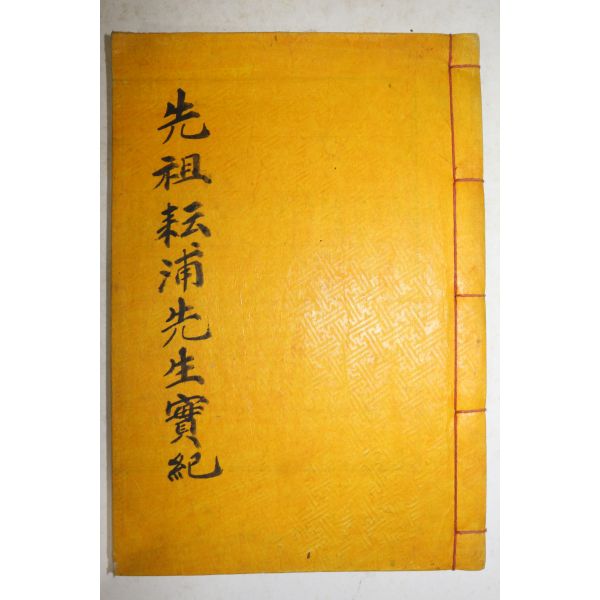 先祖耘浦先生實紀